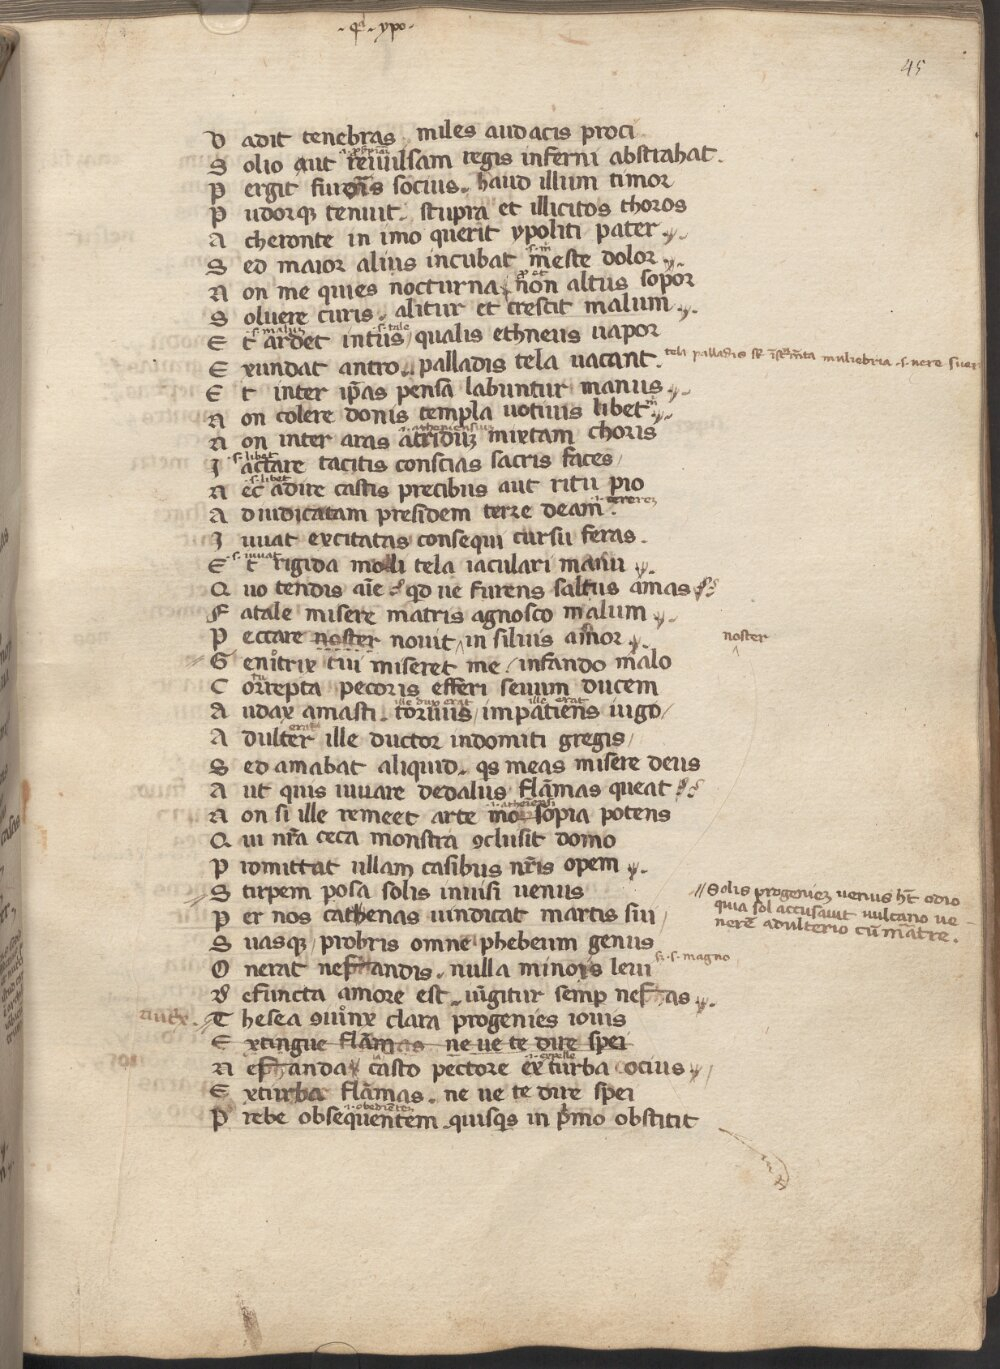 ·qͣ· ypo·
45
V adit tenebras miles audacis proci
S olio aut reuulsam regis inferni abstrahat.
P ergit furens socius. haud illum timor
P udorqꝫ tenuit. stupra et illicitos thoros
A cheronte in imo querit ypoliti pater.
·s·m̄
S ed maior alius incubat meste dolor.
N on me quies nocturna / non altus sopor
S oluere curis. alitur et crescit malum.
·s·malum ·s·tale
E t ardet intus / qualis ethneus uapor
E xundat antro. palladis tela uacant.
tela palladis
muliebria
E t inter ip̄as pensa labuntur manus.
N on colere donis templa uotiuis libet
·i·atheniensium
N on inter aras atridum mixtam choris
·s·libet
I actare tacitis conscias sacris faces /
·s·libet
N ec adire castis precibus aut ritu pio
A diudicatam presidem terre deam.
I uuat excitatas consequi cursu feras.
·s·iuuat
E t rigida molli tela iaculari manu.
Q uo tendis aīe qd ue furens saltus amas
F atale misere matris agnosco malum
P eccare noster nouit in siluis amor.
noster
G enitrix tui miseret me / infando malo
C orrepta pecoris efferi seuum ducem
ille dux erat ille erat
A udax amasti. toruus / impatiens iugo /
erat
A dulter ille ductor indomiti gregis /
S ed amabat aliquid. qs meas misere deus
A ut quis iuuare dedalus flāmas queat
N on si ille remeet arte mosopia potens
Q ui nr̄a ceca monstra ꝯclusit domo
P romittat ullam casibus nr̄is opem
S tirpem posa solis inuisi uenus
// Solis progeniem uenus ht̄ odio
quia sol accusauit uulcano ue
nerē adulterio cū matre.
P er nos cathenas uindicat martis sui /
S uasqꝫ / probris omne phebeum genus
O nerat nefandis. nulla minois leui
·s·magno
D efuncta amore est. iūgitur semp nefas.
T hesea ꝯiunx clara progenies iouis
E xtingue flāmas ne ue te dire spei
·i·expelle
N efanda casto pectore exturba ocius
E xturba flāmas. ne ue te dire spei
P rebe obsequentem. quisqs in pͥmo obstitit